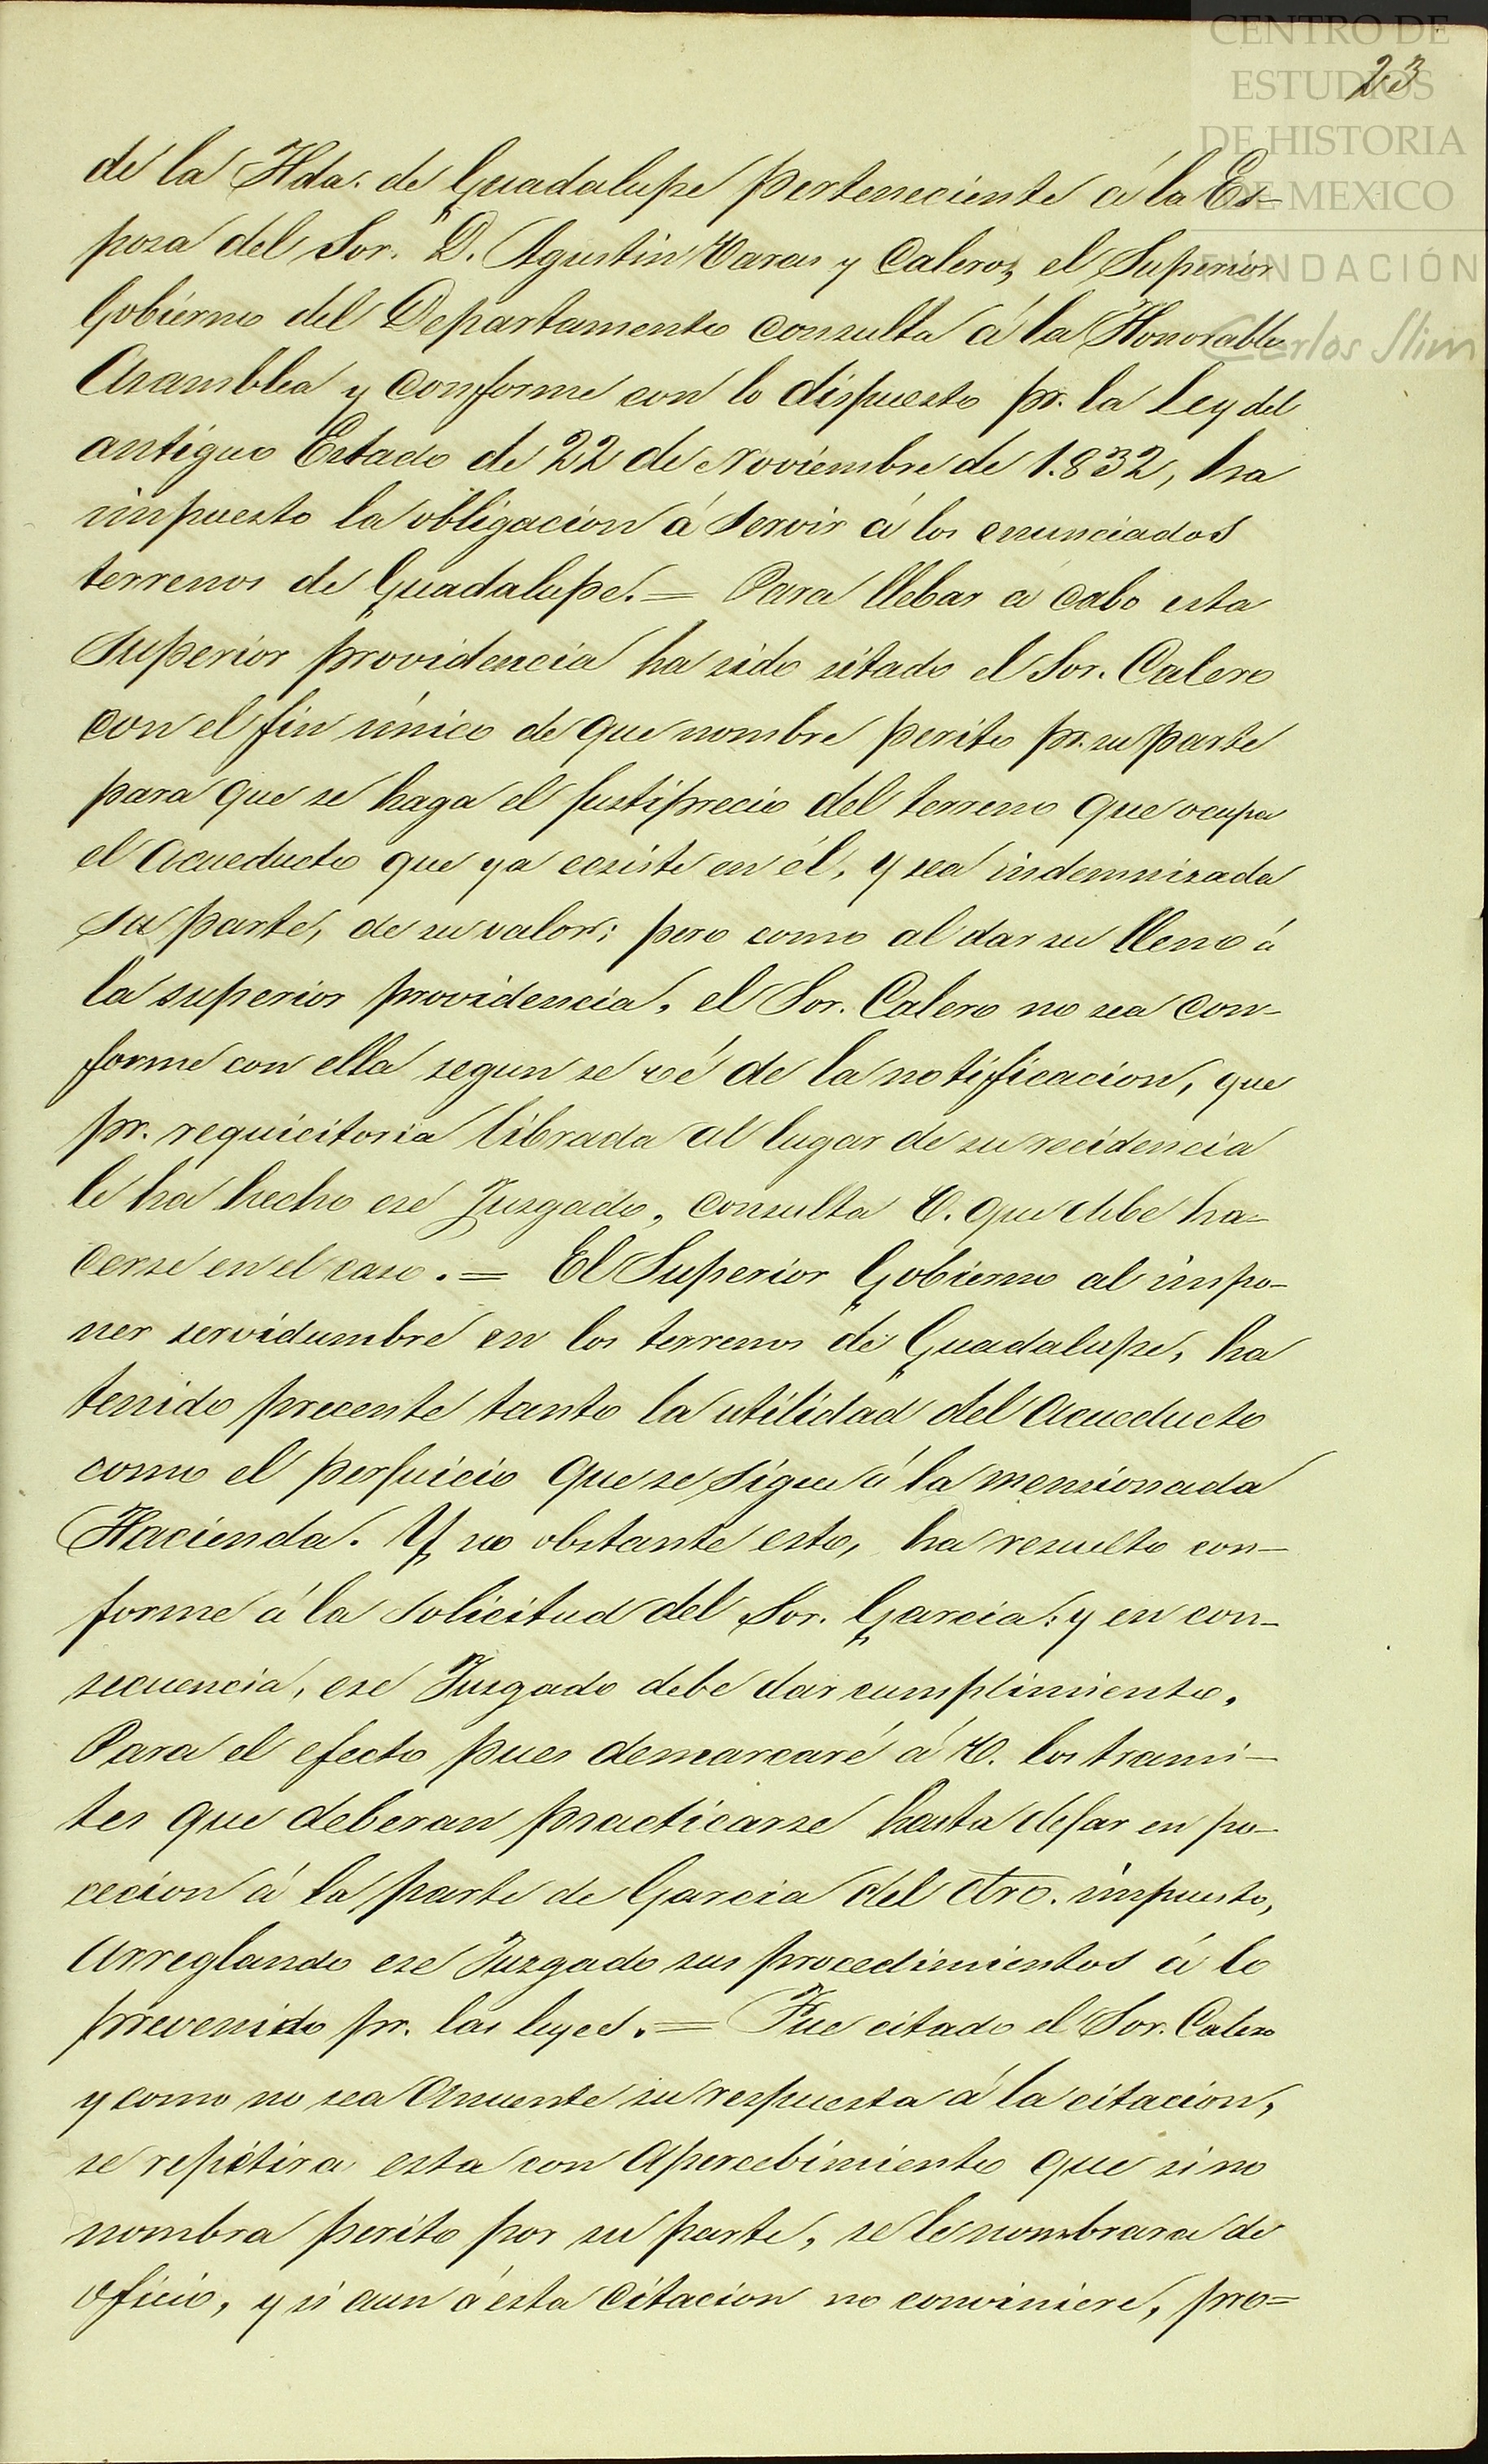 CENTRO DE
ESTUDIOS
DE HISTORIA
DE MEXICO
FUNDACIÓN
Carlos Slim
23
de la Hda. de Guadalupe perteneciente á la Es-
posa del Sor. D. Agustin Varas y Calero, el Superior
Gobierno del Departamento consulta á la Honorable
Asamblea y conforme con lo dispuesto pr. la Ley del
antiguo Estado de 22 de Noviembre de 1.832, ha
impuesto la obligacion á servir á los enunciados
terrenos de Guadalupe.= Para llebar á cabo esta
superior providencia ha sido sitado el Sor. Calero
con el fin único de que nombre perito pr. su parte
para que se haga el justiprecio del terreno que ocupa
el acueducto que ya ecsiste en él, y sea indemnizada
su parte, de su valor; pero como al dar su lleno á
la superior providencia, el Sor. Calero no sea con-
forme con ella segun se vé de la notificacion, que
pr. requicitoria librada al lugar de su recidencia
le ha hecho ese Juzgado, consulta V. que debe ha-
cerse en el caso.= El Superior Gobierno al impo-
ner servidumbre en los terrenos de Guadalupe, ha
tenido precente tanto la utilidad del acueducto
como el perjuicio que se sigue á la mensionada
Hacienda. Y no obstante esto, ha resuelto con-
forme á la solicitud del Sor. Garcia: y en con-
secuencia, ese Juzgado debe dar cumplimiento.
Para el efecto pues demarcaré á V. los trami-
tes que deberan practicarse hasta dejar en po-
cecion á la parte de Garcia del dro. impuesto,
arreglando ese Juzgado sus procedimientos á lo
prevenido pr. las leyes.= Fue citado el Sor. Calero
y como no sea anuente su respuesta á la citacion,
se repitira esta con apercebimiento que si no
nombra perito por su parte, se le nombrara de
oficio, y si aun á esta citacion no conviniere, pro=